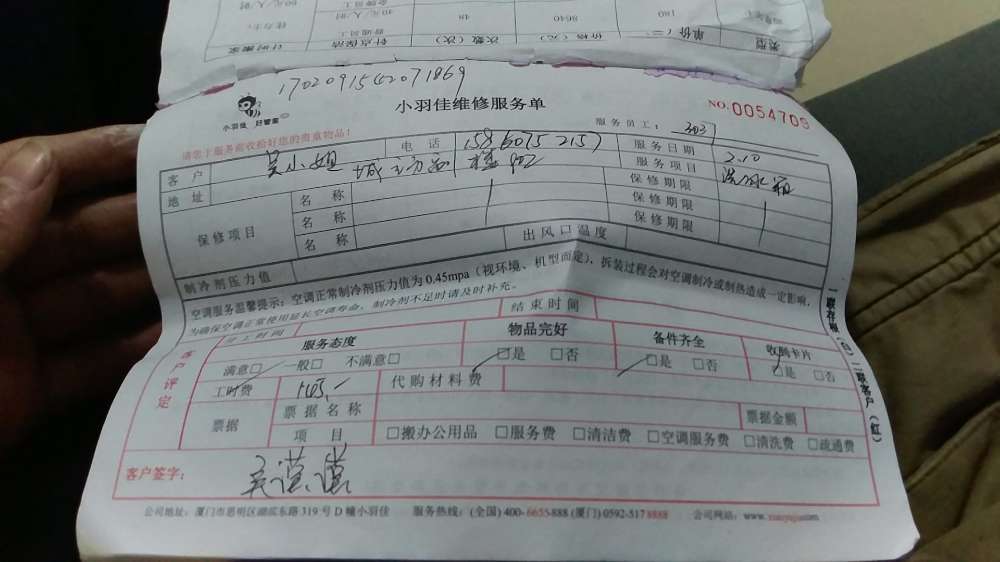 单价(元) 180
价格(元) 8640
次数(次) 48
类型
普通员工 40元/人/时
金牌员工 60元/人/时
1702091542071869
小羽佳 好管家
小羽佳维修服务单
NO:0054709
请您于服务前收拾好您的贵重物品!
服务员工: 3037
客户 吴小姐 电话 15860752157 服务日期 2.10
地址 服务项目 洗冰箱
保修项目 名称 保修期限
名称 保修期限
名称 保修期限
制冷剂压力值 出风口温度
空调服务温馨提示:空调正常制冷剂压力值为0.45mpa(视环境、机型而定),拆装过程会对空调制冷或制热造成一定影响,
为确保空调正常使用延长空调寿命,制冷剂不足时请及时补充。
开工时间 结束时间
客户评定 服务态度 物品完好 备件齐全 收到卡片
满意□ 一般□ 不满意□ □是 □否 □是 □否 □是 □否
工时费 145.- 代购材料费
票据 票据名称 票据金额
项目 □搬办公用品 □服务费 □清洁费 □空调服务费 □清洗费 □疏通费
客户签字:
一联存根(白)二联客户(红)
公司地址:厦门市思明区湖滨东路319号D幢小羽佳 服务热线:(全国)400-6655888(厦门)0592-5178888 公司网站:www.xiaoyujia.com